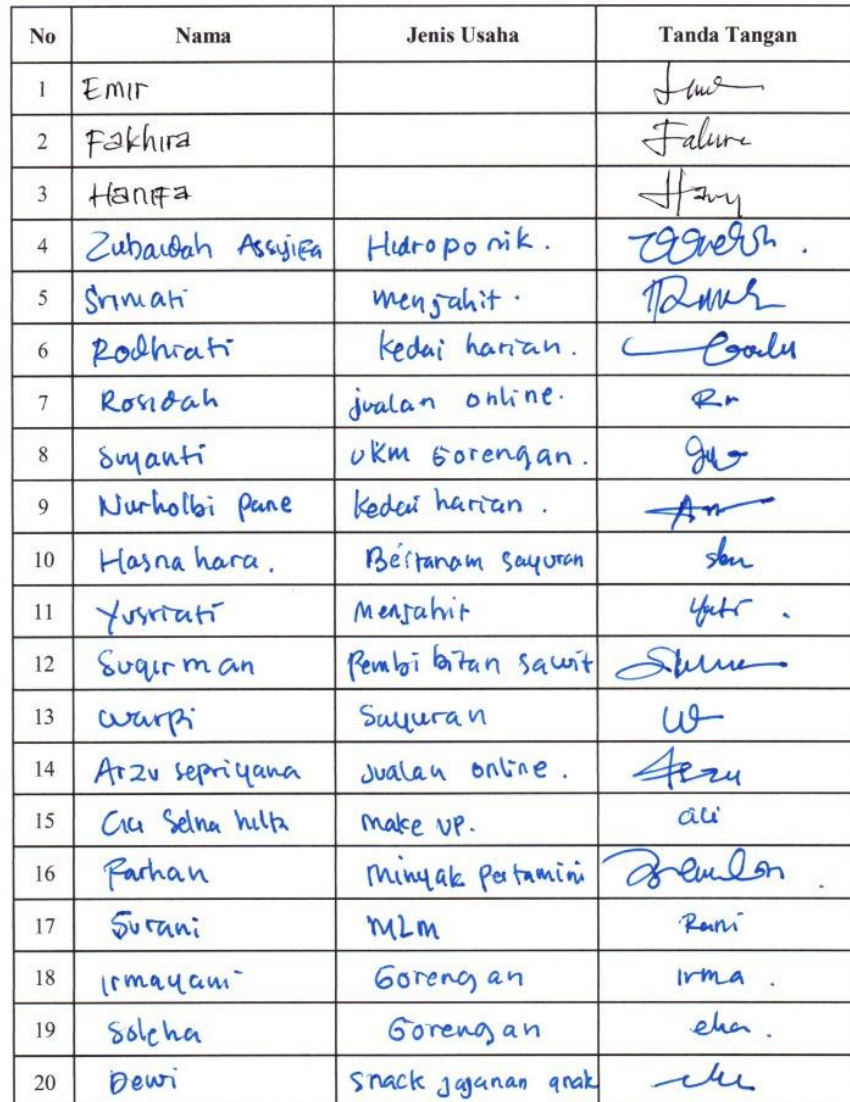 No Nama Jenis Usaha Tanda Tangan
1 Emir
2 Fakhira
3 Hanifa
4 Zubaidah Assyifa Hidroponik.
5 Srimati menjahit.
6 Rodhiati Kedai harian.
7 Rosidah jualan online. Rr
8 Suyanti UKM Gorengan.
9 Nurholbi Pane Kedai harian.
10 Hasna hara. Bertanam sayuran
11 Yusriati Menjahit Yati.
12 Sugirman Pembibitan sawit
13 Warpi Sayuran W
14 Arzu sepriyana Jualan online. Arzu
15 Cici Selna make up. cici
16 Farhan Minyak Pertamini
17 Surani MLM Rani
18 irmayani Gorengan irma.
19 Soleha Gorengan eha.
20 Dewi Snack jajanan anak